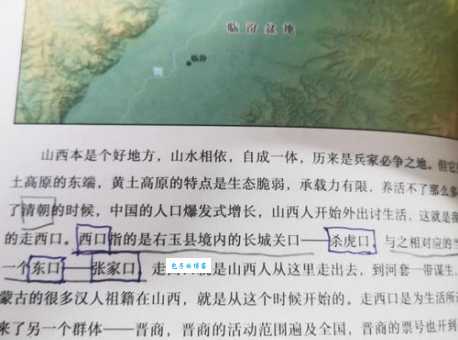 临汾盆地
临汾
山西本是个好地方，山水相依，自成一体，历来是兵家必争之地。但它
土高原的东端，黄土高原的特点是生态脆弱，承载力有限，养活不了那么多
了清朝的时候，中国的人口爆发式增长，山西人开始外出讨生活，这就是
的走西口。西口指的是右玉县境内的长城关口——杀虎口，与之相对应的
一个东口——张家口。走 就是山西人从这里走出去，到河套一带谋生，
蒙古的很多汉人祖籍在山西，就是从这个时候开始的。走西口是为生活所
来了另一个群体——晋商，晋商的活动范围遍及全国，晋商的票号也开到